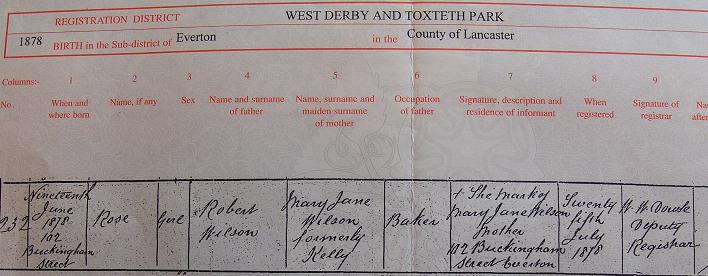 REGISTRATION DISTRICT WEST DERBY AND TOXTETH PARK
1878 BIRTH in the Sub-district of Everton in the County of Lancaster
Columns:- 1 2 3 4 5 6 7 8 9
No. When and where born Name, if any Sex Name and surname of father Name, surname and maiden surname of mother Occupation of father Signature, description and residence of informant When registered Signature of registrar
232
Nineteenth
June
1878
102
Buckingham
Street
Rose
Girl
Robert
Wilson
Mary Jane
Wilson
formerly
Kelly
Baker
+ The mark of
Mary Jane Wilson
Mother
102 Buckingham
Street Everton
Twenty
fifth
July
1878
Deputy
Registrar